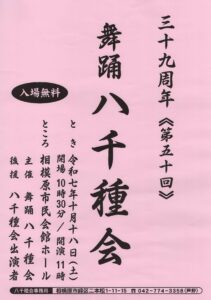 三十九周年《第五十回》
舞踊 八千種会
入場無料
とき 令和七年十月十八日(土)
開場10時30分/開演11時
ところ 相模原市民会館ホール
主催 舞踊 八千種会
後援 八千種会出演者
八千種会事務局